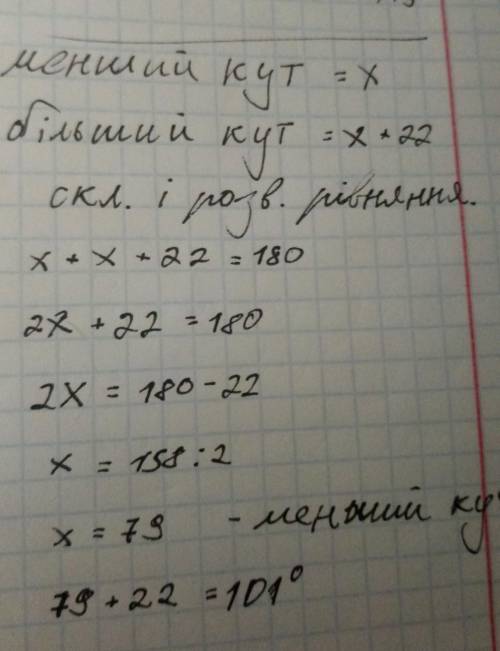 менший кут = x
більший кут = x + 22
скл. і розв. рівняння.
x + x + 22 = 180
2x + 22 = 180
2x = 180 - 22
x = 158 : 2
x = 79 - менший ку
79 + 22 = 101°